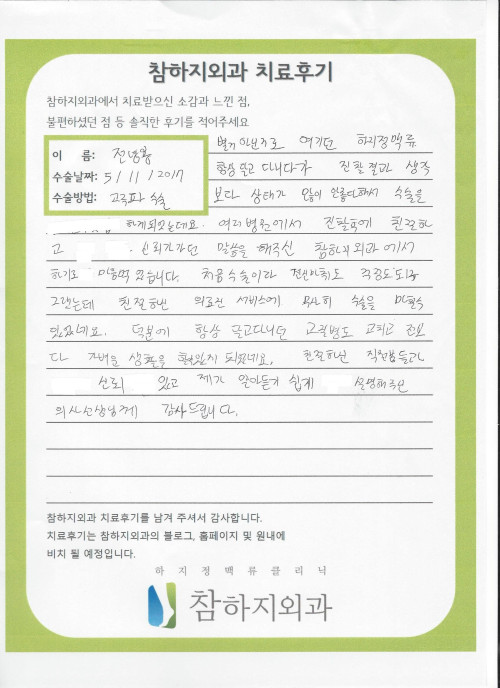 참하지외과 치료후기
참하지외과에서 치료받으신 소감과 느낀 점,
불편하셨던 점 등 솔직한 후기를 적어주세요
이 름:
수술날짜: 5/11/2017
수술방법: 고주파 수술
별거 아닌주로 여기던 하지정맥류
항상 달고 다니다가 진찰결과 생각
보다 상태가 많이 안좋다해서 수술을
하게되었는데요. 여러병원에서 진찰후에 친절하
고 신뢰가가던 말씀을 해주신 참하지외과에서
하기로 마음먹었습니다. 처음수술이라 전신마취도 걱정도되고
그랬는데 친절하신 의료진 서비스에 무사히 수술을 마칠수
있었네요. 덕분에 항상 달고다니던 고질병도 고치고 전보
다 가벼운 생활을 할 수 있게 되었네요. 친절하신 직원분들과
신뢰 있고 제가 알아듣기 쉽게 설명해주신
의사선생님께 감사드립니다.
참하지외과 치료후기를 남겨 주셔서 감사합니다.
치료후기는 참하지외과의 블로그, 홈페이지 및 원내에
비치 될 예정입니다.
하지정맥류클리닉
참하지외과